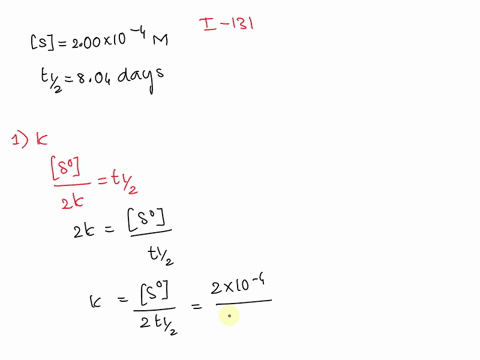 I-131
[S] = 2.00×10⁻⁴ M
t½ = 8.04 days
1) K
[S⁰]/2K = t½
2K = [S⁰]/t½
K = [S⁰]/2t½ = 2×10⁻⁴/